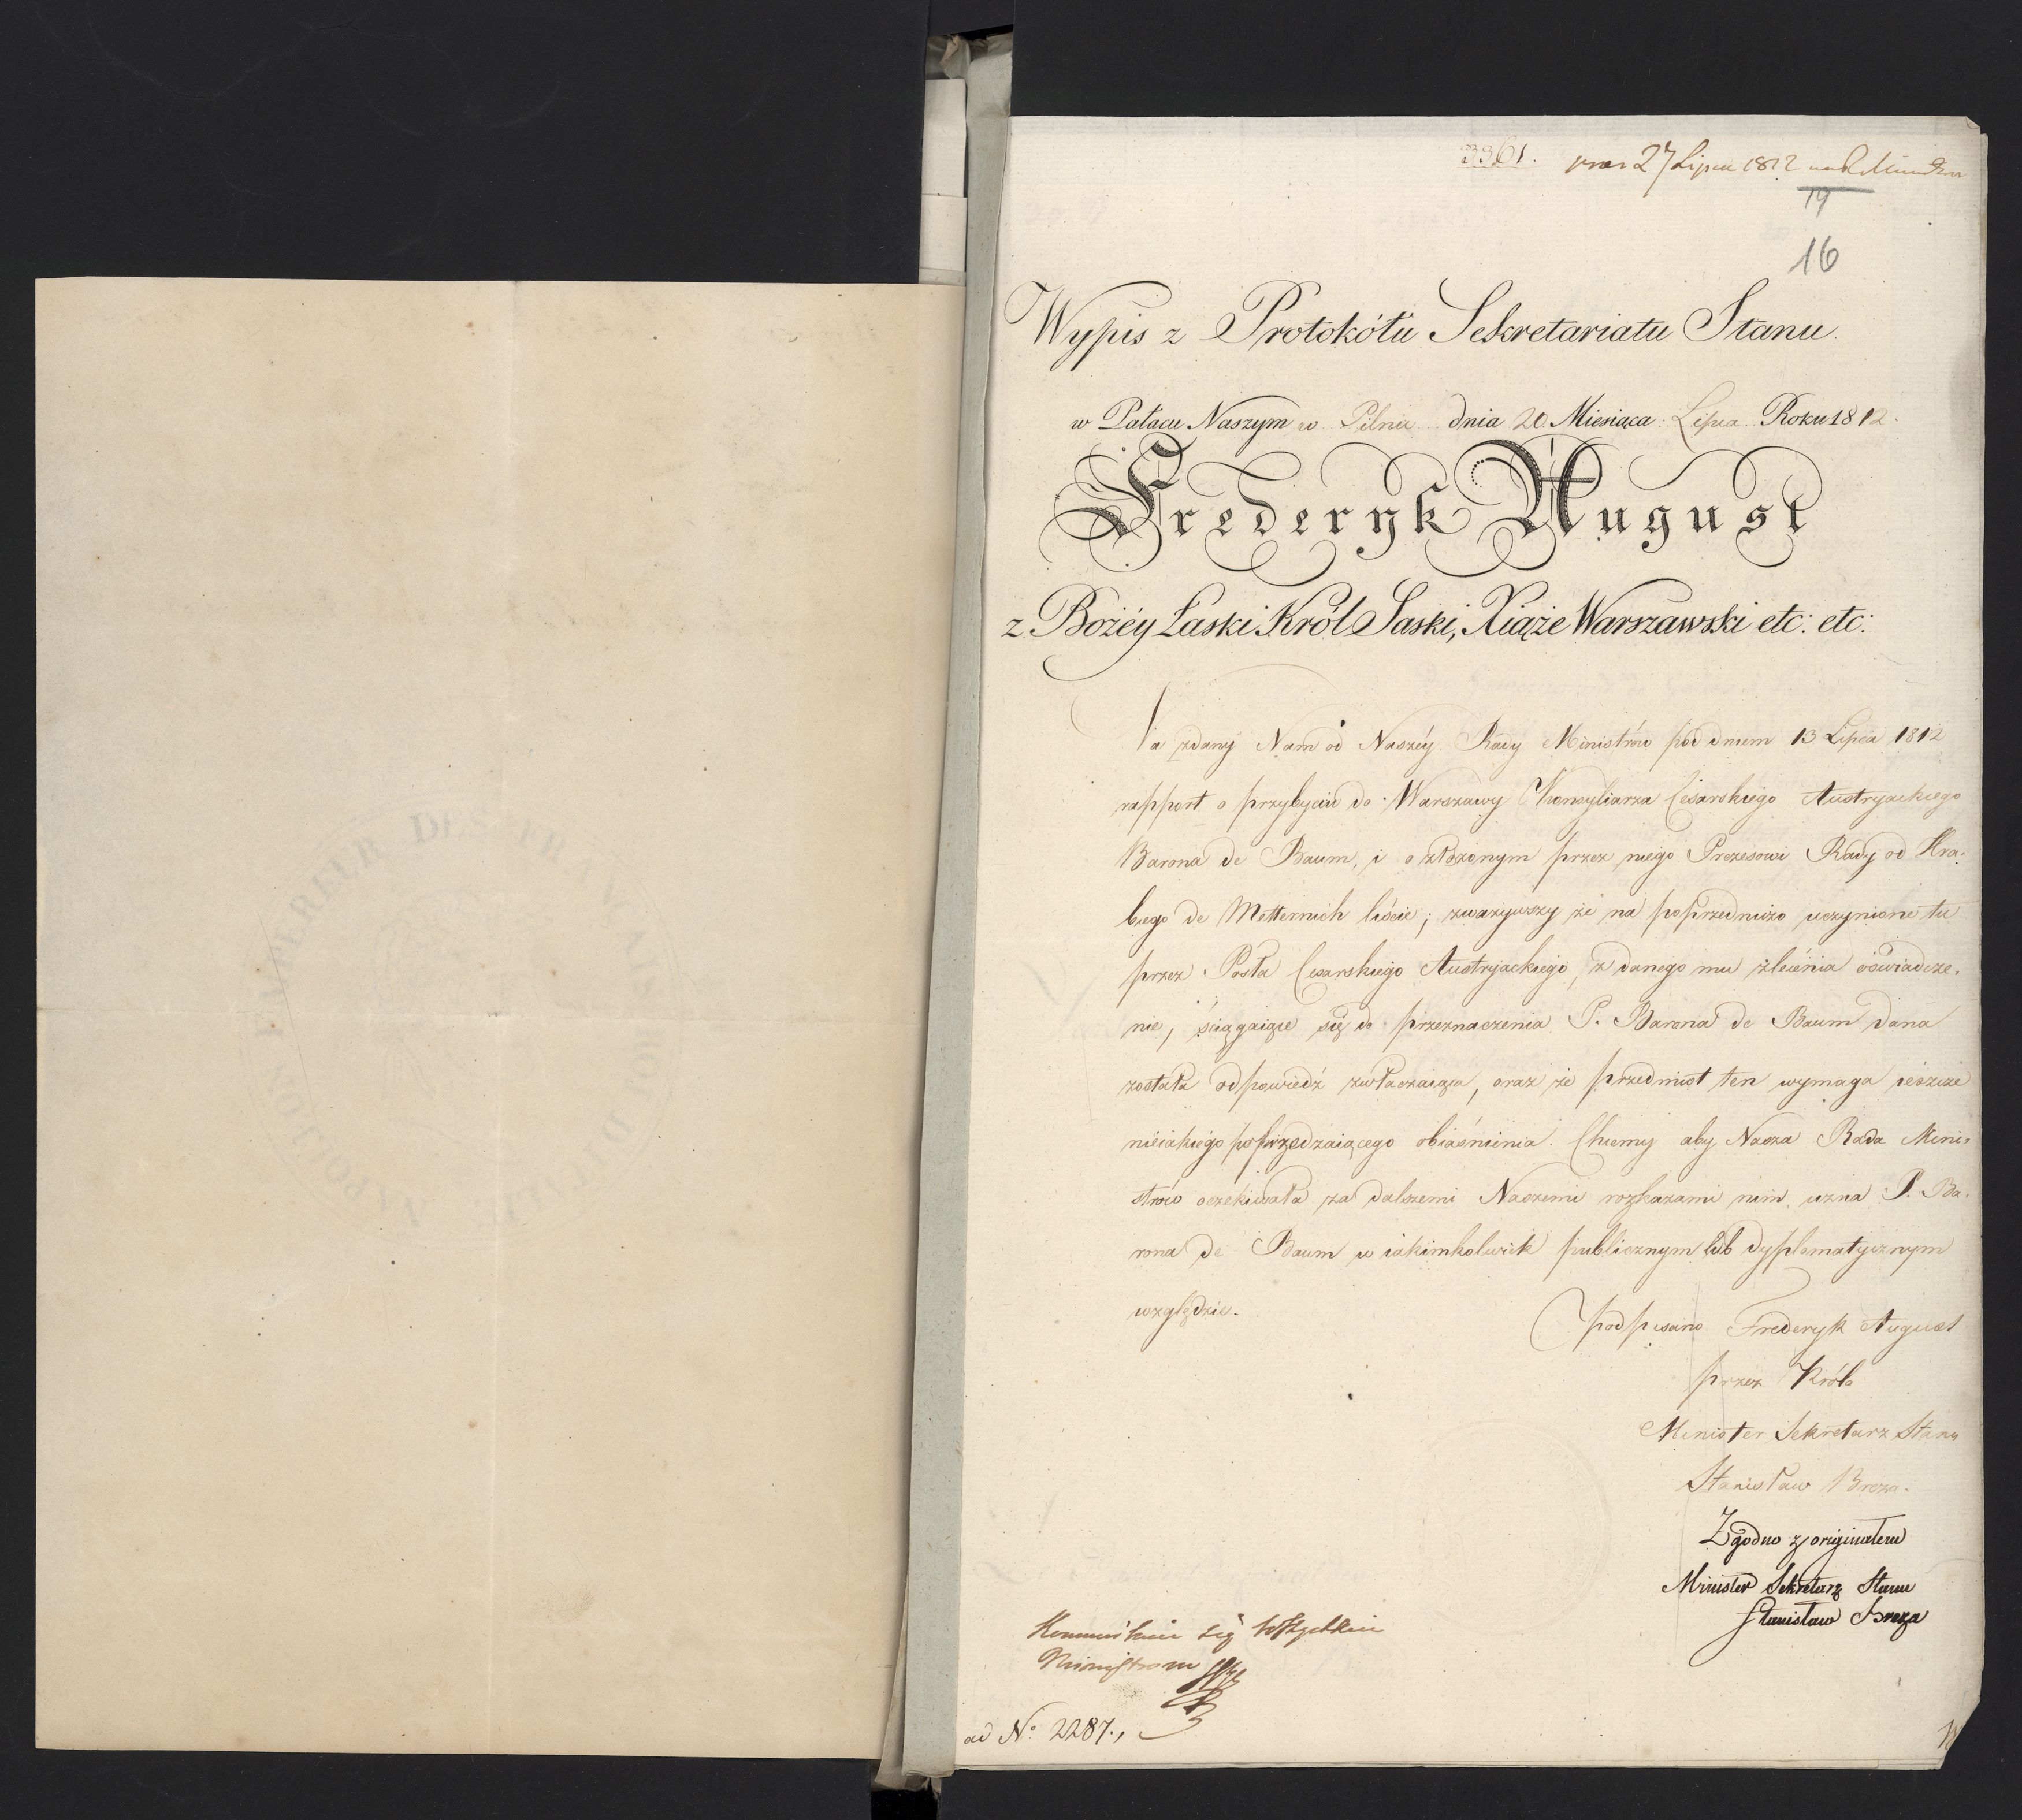 3361. 27 Lipca 1812
14
16
Wypis z Protokółu Sekretariatu Stanu.
w Pałacu Naszym w Pilnic dnia 20 Miesiąca Lipca Roku 1812.
Frederyk August
z Bożéy Łaski Król Saski, Xiąże Warszawski etc: etc:
Na zdany Nam od Naszéy Rady Ministrów pod dniem 13 Lipca 1812
rapport o przybyciu do Warszawy Konsyliarza Cesarskiego Austryackiego
Barona de Baum, i o złożonym przez niego Prezesowi Rady od Hra-
biego de Metternich liście; zważywszy że na poprzedniczo uczynione tu
przez Posła Cesarskiego Austryackiego, z danego mu zlecenia oświadcze-
nie, ściągaiące się do przeznaczenia P. Barona de Baum dana
została odpowiedź zwłaczaiąca, oraz że przedmiot ten wymaga ieszcze
nieiakiego poprzedzaiącego obiaśnienia. Chcemy aby Nasza Rada Mini-
strów oczekiwała za dalszemi Naszemi rozkazami nim uzna P. Ba-
rona de Baum w iakimkolwiek publicznym lub dyplomatycznym
względzie.
podpisano Frederyk August
przez Króla
Minister Sekretarz Stanu
Stanisław Breza.
Zgodno z originałem
Minister Sekretarz Stanu
Stanisław Breza
się wszystkim
Ministrom
ad No. 2287.,